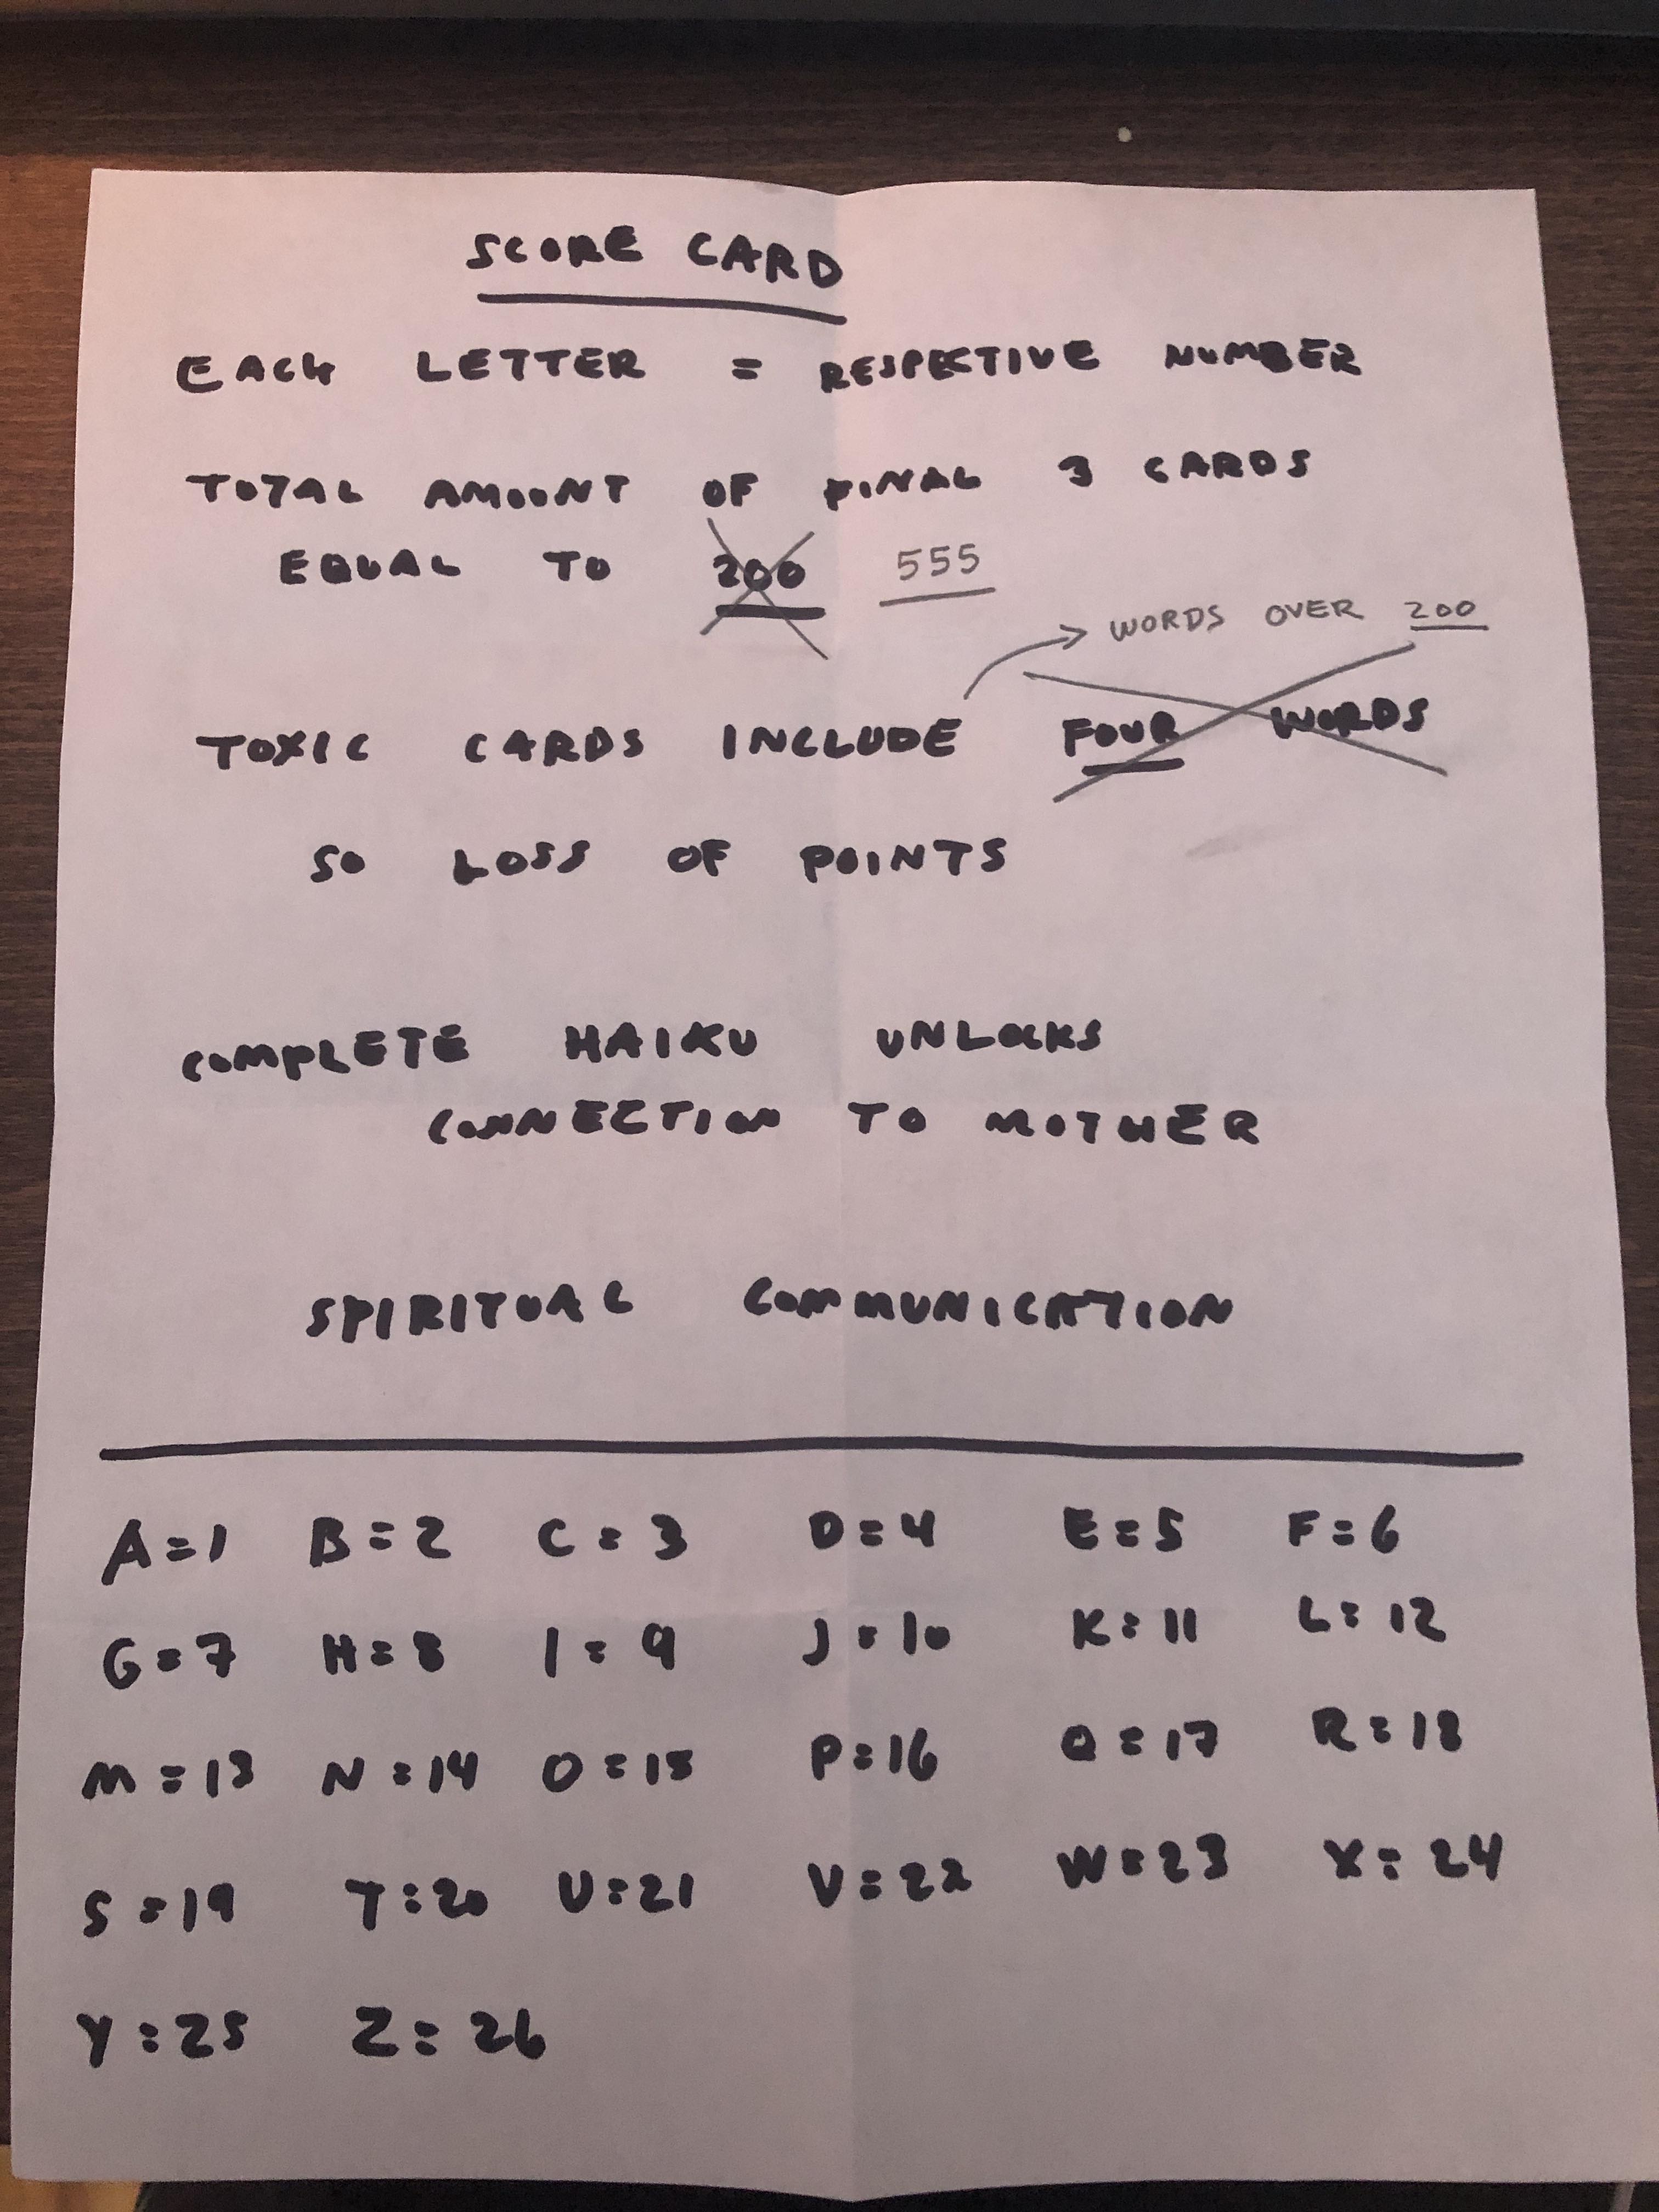 SCORE CARD
EACH LETTER = RESPECTIVE NUMBER
TOTAL AMOUNT OF FINAL 3 CARDS
EQUAL TO 200 555
→ WORDS OVER 200
TOXIC CARDS INCLUDE FOUR WORDS
SO LOSS OF POINTS
COMPLETE HAIKU UNLOCKS
CONNECTION TO MOTHER
SPIRITUAL COMMUNICATION
A=1 B=2 C=3 D=4 E=5 F=6
G=7 H=8 I=9 J=10 K=11 L=12
M=13 N=14 O=15 P=16 Q=17 R=18
S=19 T=20 U=21 V=22 W=23 X=24
Y=25 Z=26